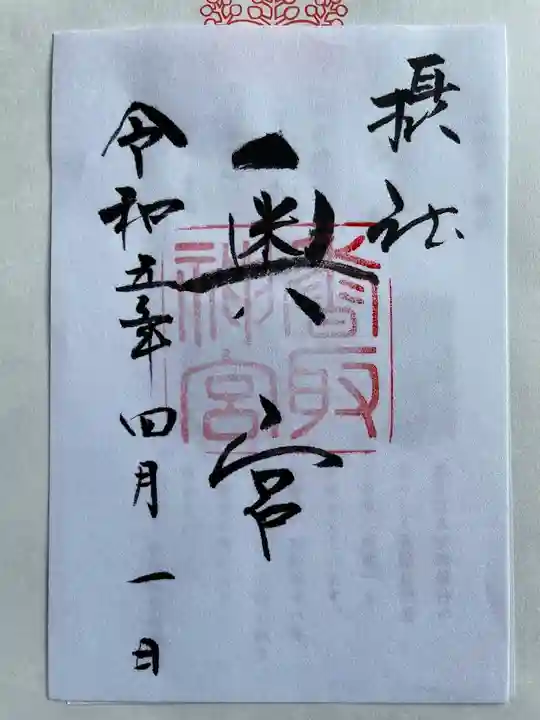 摂社
奥宮
香取
神宮
令和五年四月一日